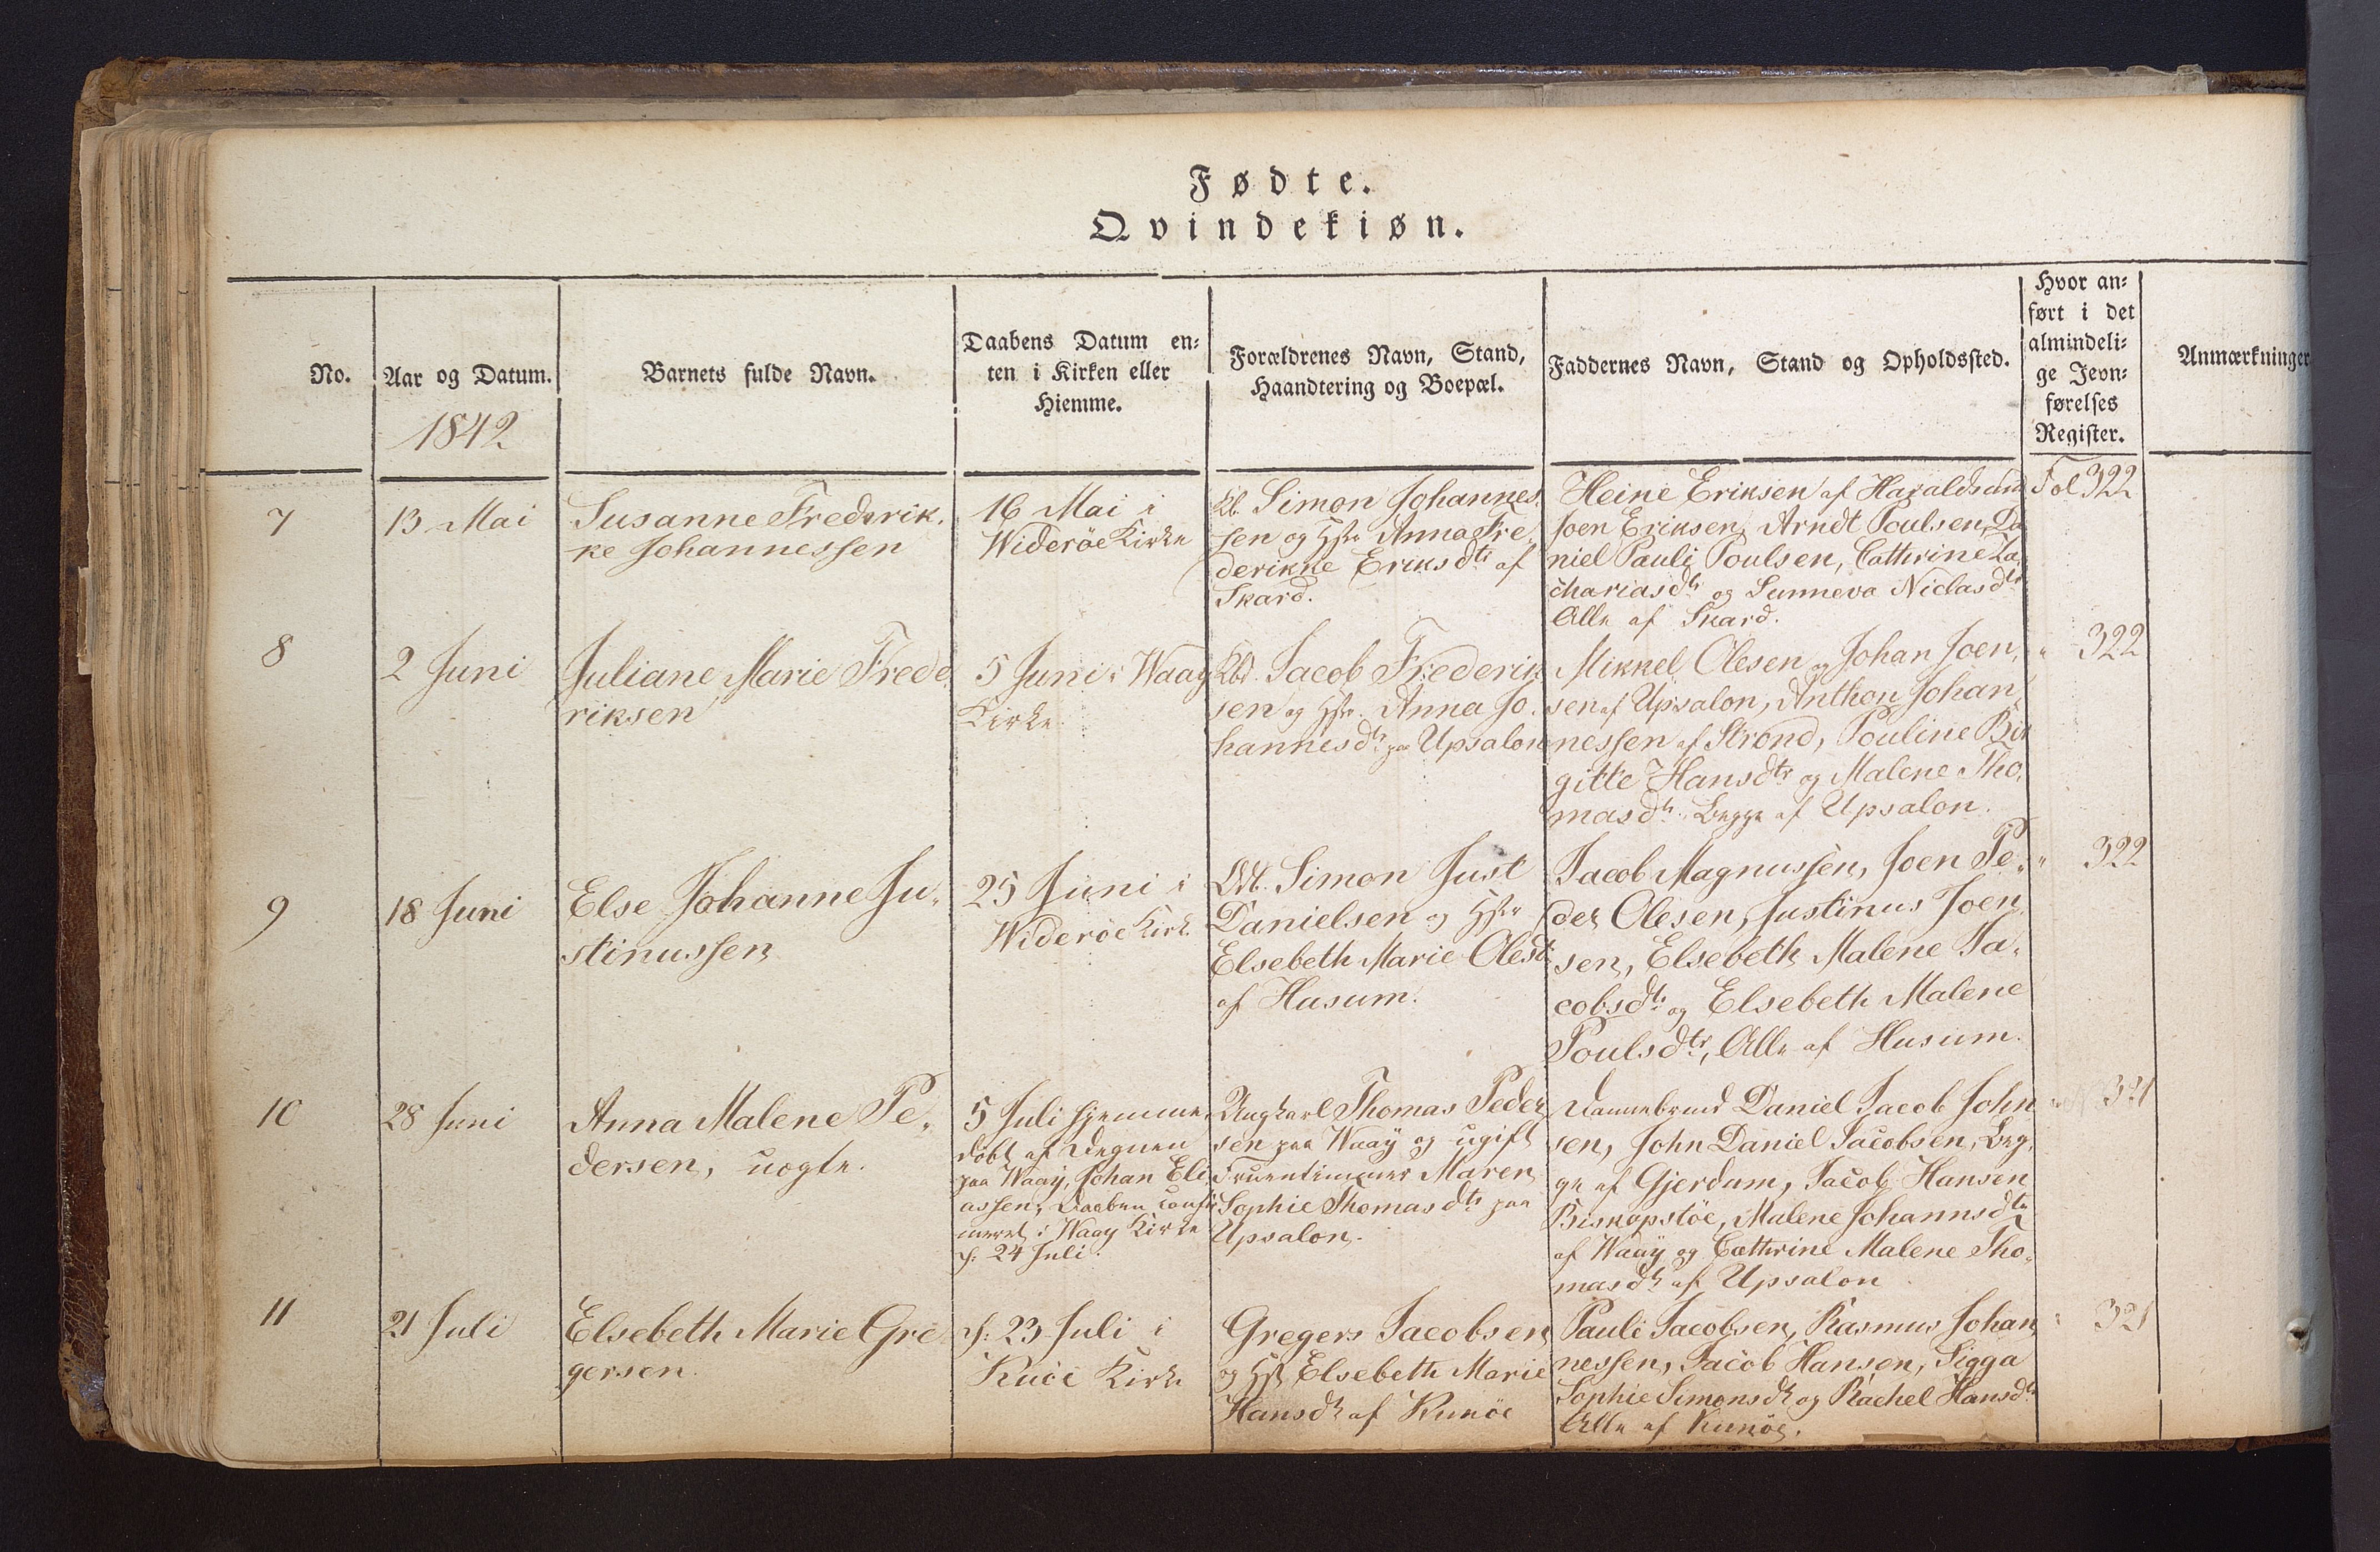 Fødte.
Qvindekiøn.
No.
Aar og Datum.
1842
Barnets fulde Navn.
Daabens Datum en-
ten i Kirken eller
Hiemme.
Forældrenes Navn, Stand,
Haandtering og Boepæl.
Faddernes Navn, Stand og Opholdssted.
Hvor an-
ført i det
almindeli-
ge Jevn-
førelses
Register.
Anmærkninger
7
13 Mai
Susanne Frederik-
ke Johannessen
16 Mai i
Widerøe Kirke
Simon Johannes-
sen og Anna Fre-
derikke Eriksdtr af
Skard.
Heine Eriksen af Haraldsund
Joen Eriksen, Arndt Poulsen, Da
niel Pauli Poulsen, Cathrine Za-
chariasdtr og Sunneva Niclasdtr
Alle af Skard.
Fol 322
8
2 Juni
Juliane Marie Frede-
riksen
5 Juni i Waay
Kirke
Jacob Frederik
sen og Anna Jo-
hannesdtr paa Upsalon
Mikkel Olesen og Johan Joen-
sen af Upsalon, Anthon Johan-
nessen af Strond, Pouline Bir
gitte Hansdtr og Malene Tho-
masdtr. Begge af Upsalon.
" 322
9
18 Juni
Else Johanne Ju-
stinussen
25 Juni i
Widerøe Kirke
Simon Just
Danielsen og
Elsebeth Marie Olesdtr
af Husum.
Jacob Magnussen, Joen Pe-
der Olesen, Justinus Joen
sen, Elsebeth Malene Ja-
cobsdtr og Elsebeth Malene
Poulsdtr, Alle af Husum.
" 322
10
28 Juni
Anna Malene Pe-
dersen, uægte.
5 Juli hjemme-
døbt af Degnen
paa Waay, Johan Eli
assen, Daaben confir
meret i Waay Kirke
d: 24 Juli.
Ungkarl Thomas Peder
sen paa Waaÿ og ugift
Fruentimmer Maren
Sophie Thomasdtr paa
Upsalon.
Dannebrmd Daniel Jacob John
sen, John Daniel Jacobsen, Beg-
ge af Gjerdum, Jacob Hansen
Biskopstøe, Malene Johannsdtr
af Waaÿ og Cathrine Malene Tho-
masdtr af Upsalon
321
11
21 Juli
Elsebeth Marie Gre
gersen.
d: 23 Juli i
Kuøe Kirke
Gregers Jacobsen
og Elsebeth Marie
Hansdtr af Kunøe
Pauli Jacobsen, Rasmus Johan
nessen, Jacob Hansen, Sigga
Sophie Simonsdtr og Rachel Hansdtr
Alle af Kunøe.
" 321